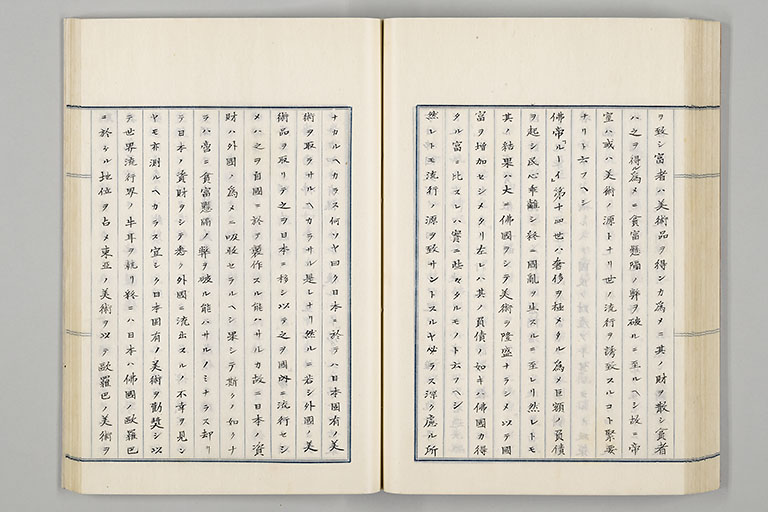 ヲ致シ富者ハ美術品ヲ得ンカ為メニ其ノ財ヲ散シ貧者
ハ之ヲ得ン為メニ貧富懸隔ノ弊ヲ破ルニ至ルヘシ故ニ帝
室ハ或ハ美術ノ源トナリ世ノ流行ヲ誘致スルコト緊要
ナリト云フヘシ
佛帝「ルーイ」第十四世ハ奢侈ヲ極メタル為メ巨額ノ負債
ヲ起シ民心乖離シ終ニ國乱ヲ生スルニ至レリ然レトモ
其ノ結果ハ大ニ佛國ヲシテ美術ヲ隆盛ナラシメ以テ國
富ヲ増加セシメタリ左レハ其ノ負債ノ如キハ佛國カ得
タル富ニ比スレハ實ニ些々タルモノト云フヘシ
然レトモ流行ノ源ヲ致サントスルヤ必ラス深ク慮ル所
ナカルヘカラス何ソヤ曰ク日本ニ於テハ日本固有ノ美
術ヲ取ラサルヘカラサル是レナリ然ルニ若シ外國ノ美
術品ヲ取リテ之ヲ日本ニ移シ以テ之ヲ國内ニ流行セシ
メハ之ヲ自國ニ於テ製作スル能ハサルカ故ニ日本ノ資
財ハ外國ノ為メニ吸收セラルヘシ果シテ斯クノ如クナ
ラハ啻ニ貧富懸隔ノ弊ヲ破ル能ハサルノミナラス却リ
テ日本ノ資財ヲシテ悉ク外國ニ流出スルノ不幸ヲ見ン
ヤモ亦測ルヘカラス宜シク日本固有ノ美術ヲ勸奨シ以
テ世界流行界ノ牛耳ヲ執リ終ニハ日本ハ佛國ノ歐羅巴
ニ於ケル地位ヲ占メ東亞ノ美術ヲ以テ歐羅巴ノ美術ヲ